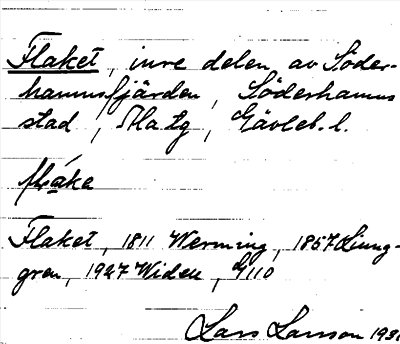 Flaket, inre delen av Söder-
hamnsfjärden, Söderhamns
stad, Hatg, Gävleb. l.
fláke
Flaket, 1811 Werming, 1857 Ljung-
gren, 1927 Widen, G110
Lars Larsson 193